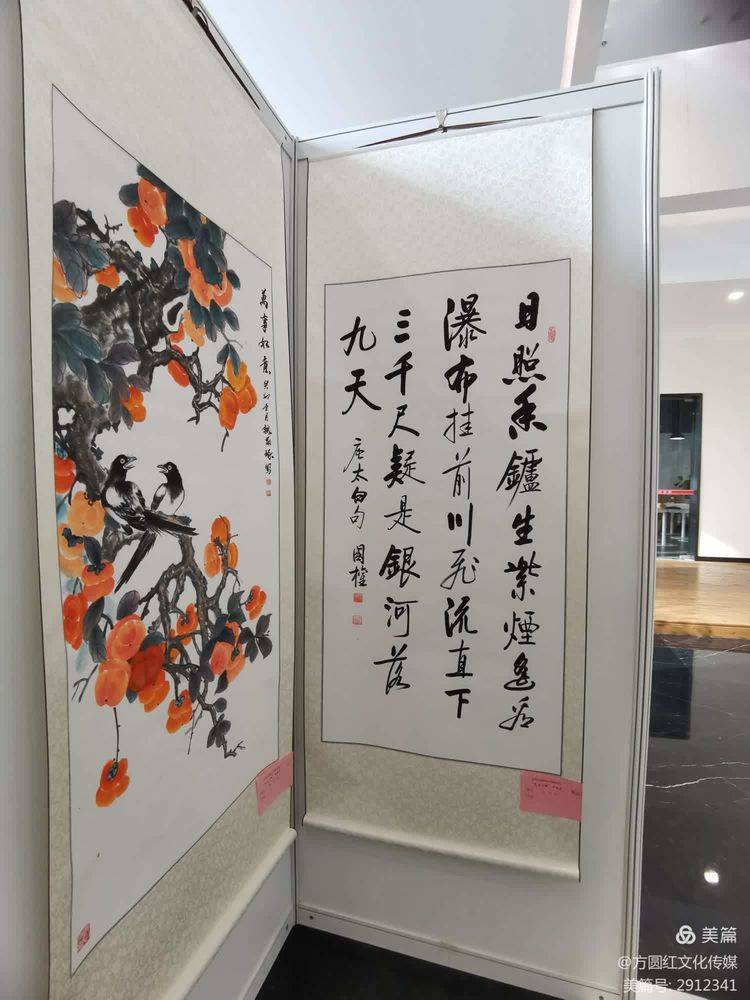 萬事如意
日照香鑪生紫煙遙看
瀑布挂前川飛流直下
三千尺疑是銀河落
九天
太白句 國權
美篇
@方圆红文化传媒
美篇号: 2912341